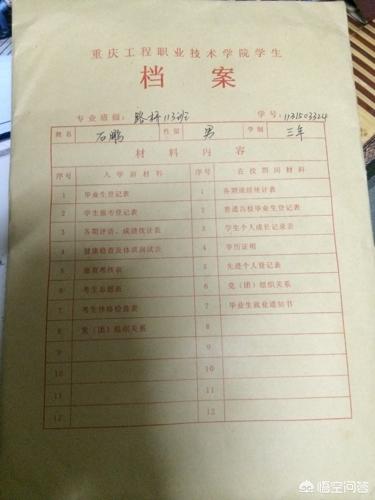 重庆工程职业技术学院学生
档 案
专业班级: 路桥113班 学号: 1131503324
姓名 石鹏 性别 男 学制 三年
材 料 内 容
序号 入学前材料 序号 在校期间材料
1 毕业生登记表 1 各期成绩统计表
2 学生报考登记表 2 普通高校毕业生登记表
3 各期评语、成绩统计表 3 学生个人成长记录表
4 健康检查及体质测试表 4 学历证明
5 德育考核表 5 先进个人登记表
6 考生志愿表 6 党(团)组织关系
7 考生体格检查表 7 毕业生就业通知书
8 党(团)组织关系 8
9 9
10 10
11 11
12 12
悟空问答